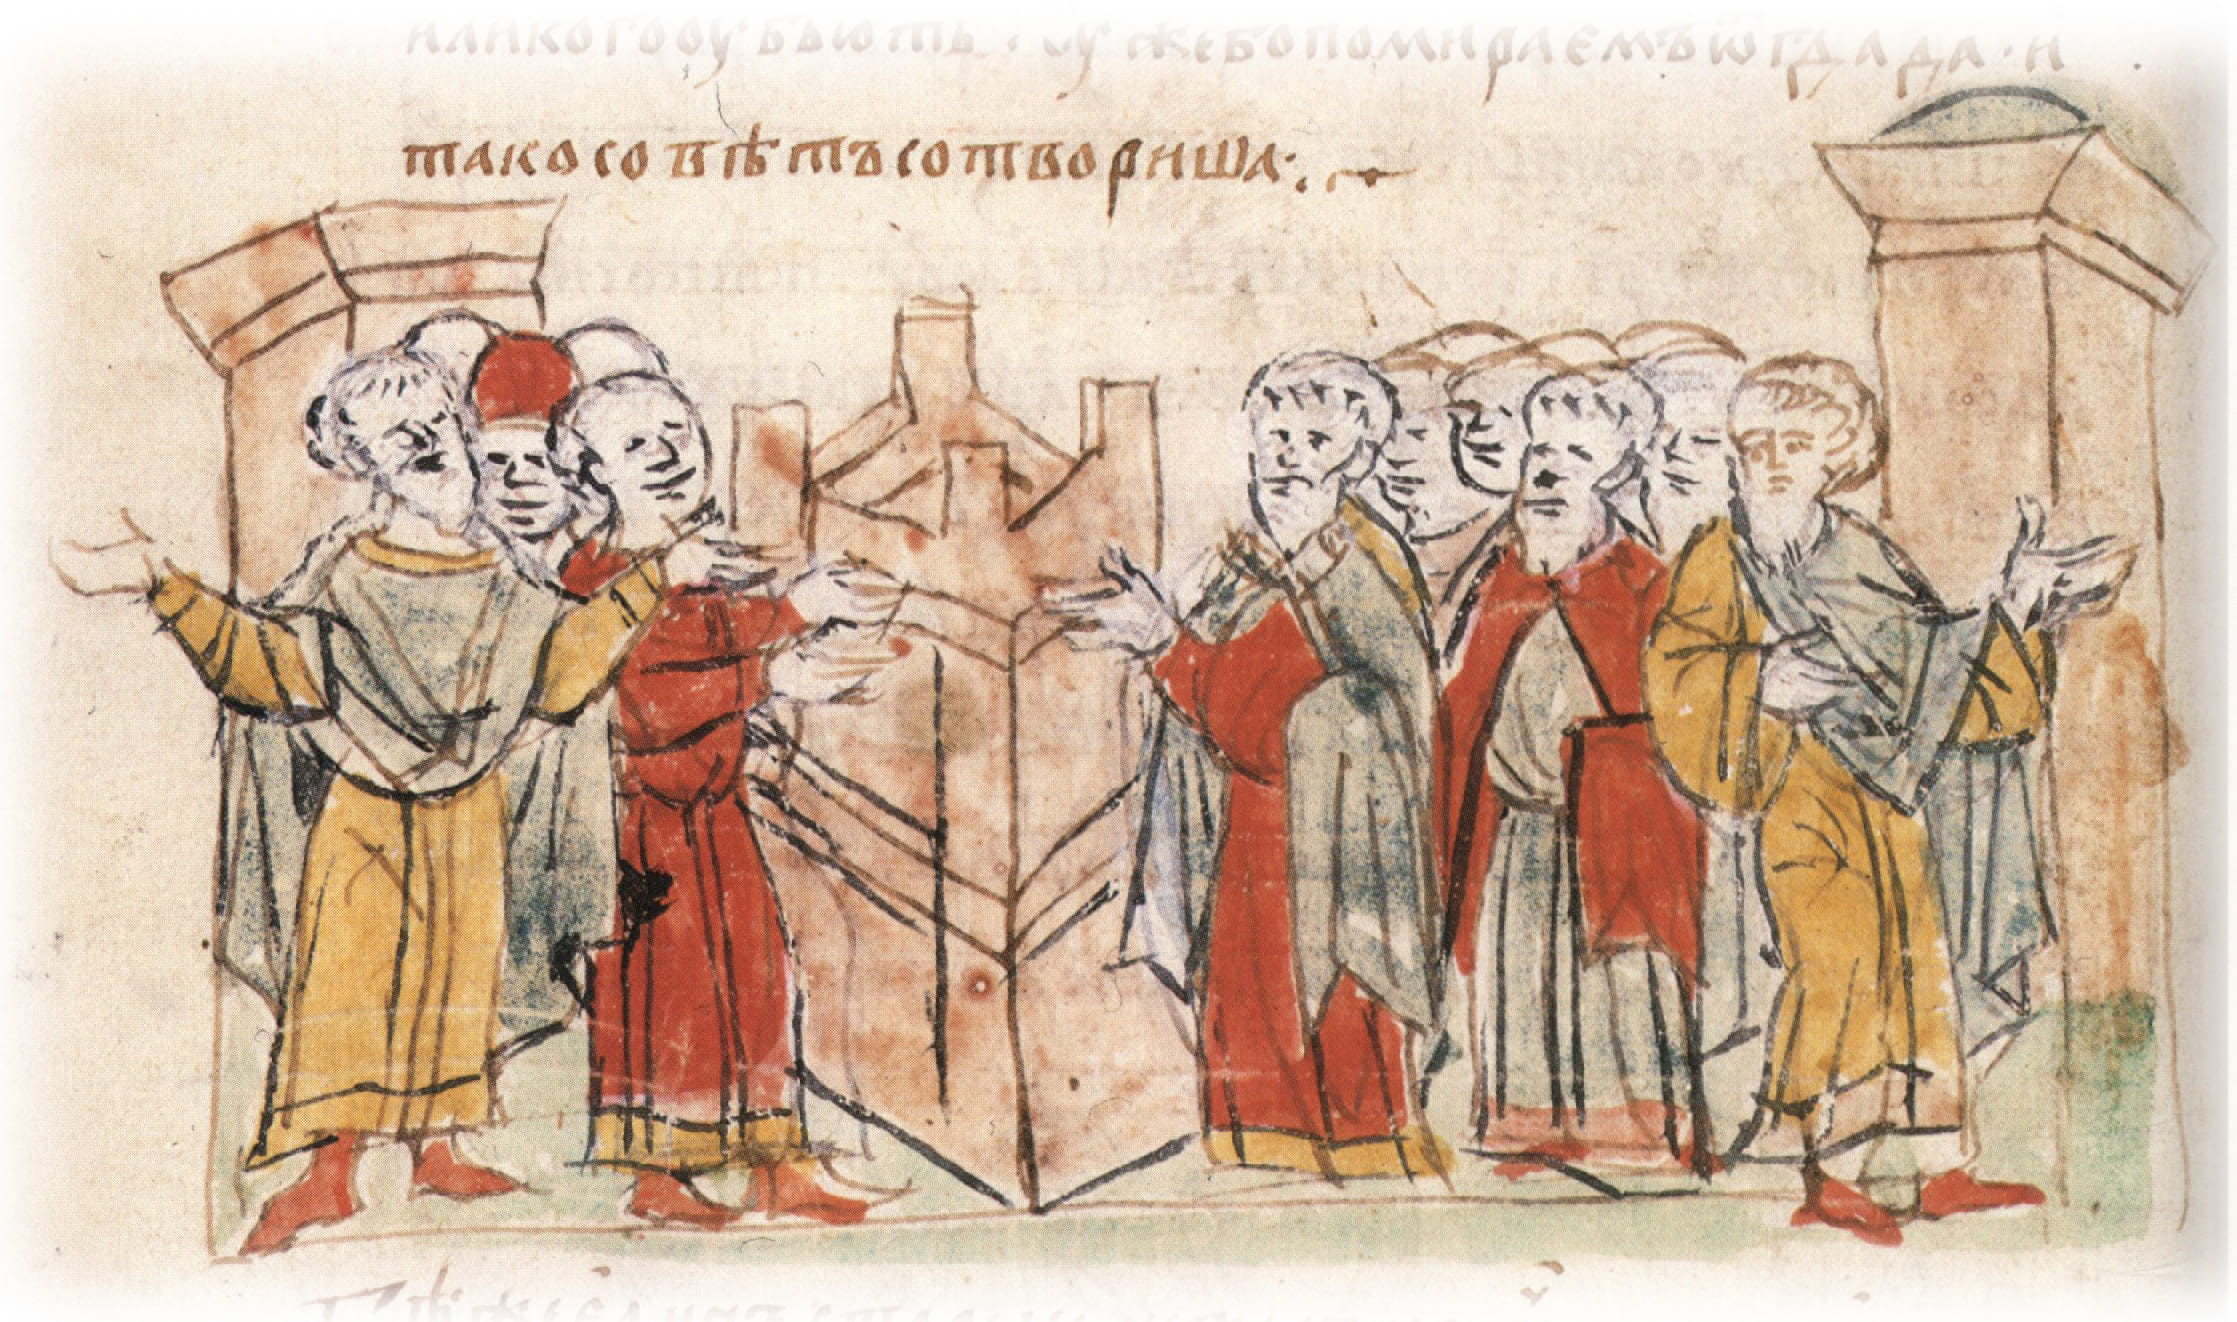 или кого оубьють · оу же бо помираемъ ѿ глада · и
тако совѣтъ сотвориша ·